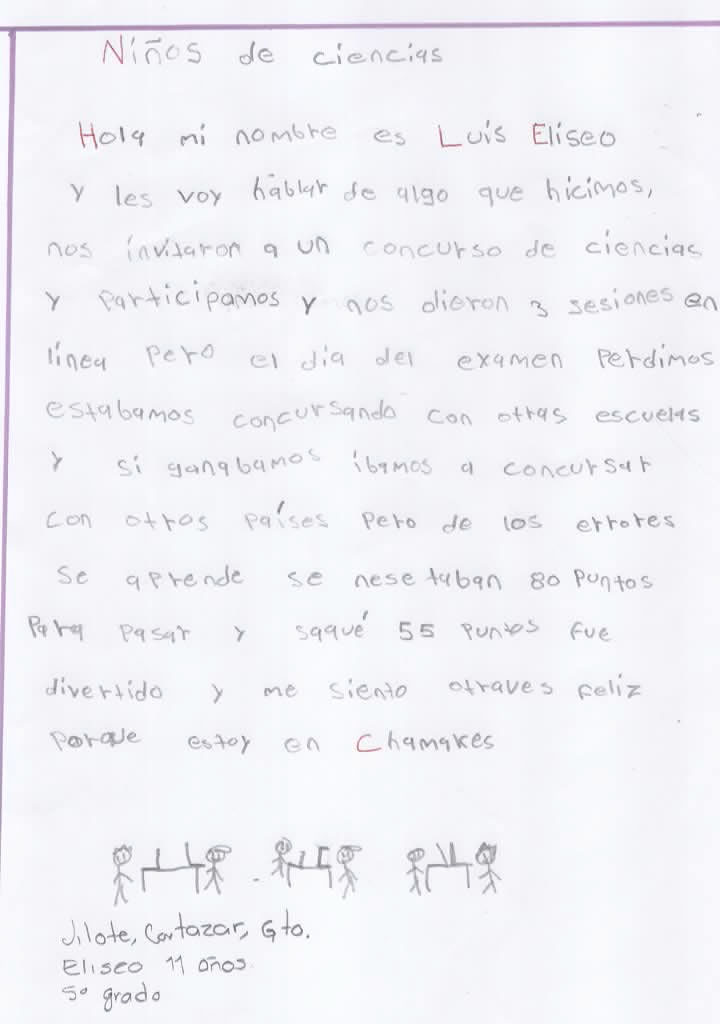 Niños de ciencias
Hola mi nombre es Luis Eliseo
y les voy hablar de algo que hicimos,
nos invitaron a un concurso de ciencias
y participamos y nos dieron 3 sesiones en
línea pero el día del examen perdimos
estabamos concursando con otras escuelas
y si ganabamos íbamos a concursar
con otros países pero de los errores
se aprende se nesetaban 80 puntos
para pasar y saqué 55 puntos fue
divertido y me siento otraves feliz
porque estoy en Chamakes
Jilote, Cortazar, Gto.
Eliseo 11 años
5° grado